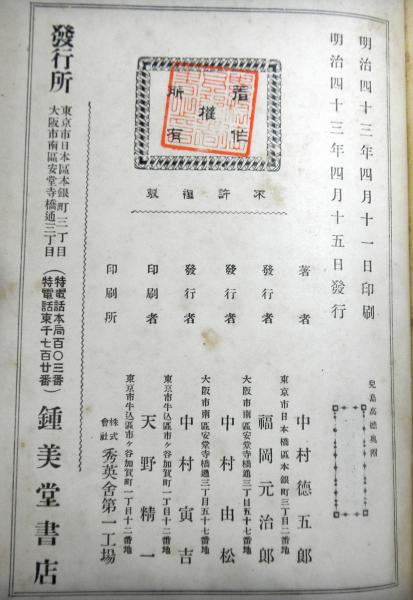 明治四十三年四月十一日印刷
明治四十三年四月十五日發行
兒島高德奧附
著作
權
所有
不許複製
著者
中村德五郎
東京市日本橋區本銀町三丁目二番地
發行者
福岡元治郎
大阪市南區安堂寺橋通三丁目五十七番地
發行者
中村由松
大阪市南區安堂寺橋通三丁目五十七番地
發行者
中村寅吉
東京市牛込區市ヶ谷加賀町一丁目十二番地
印刷者
天野精一
東京市牛込區市ヶ谷加賀町一丁目十二番地
印刷所
株式會社 秀英舍第一工場
發行所
東京市日本區本銀町三丁目
大阪市南區安堂寺橋通三丁目
(特電話本局百〇三番
特電話東千七百廿番)
鍾美堂書店